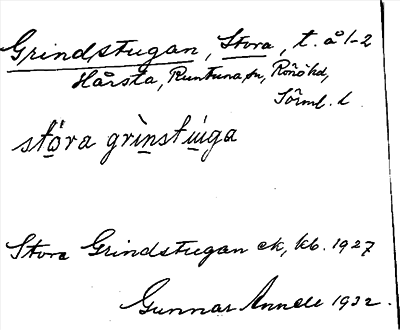 Grindstugan, Stora, t. å 1-2
Hårsta, Runtuna sn, Rönö hd,
Sörml. l.
störa grìnstuga
Stora Grindstugan ek, kb. 1927
Gunnar Annell 1932.